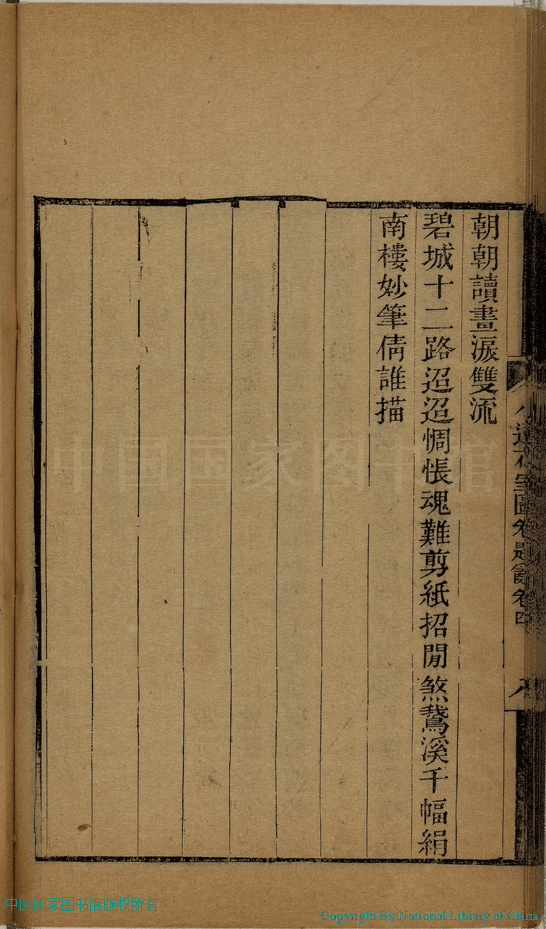 朝朝讀畫淚雙流
碧城十二路迢迢惆悵魂難剪紙招閒煞鵞溪千幅絹
南樓妙筆倩誰描
圖卷題
卷四
八
中国国家图书馆
中国国家图书馆版权所有
Copyright By National Library of China